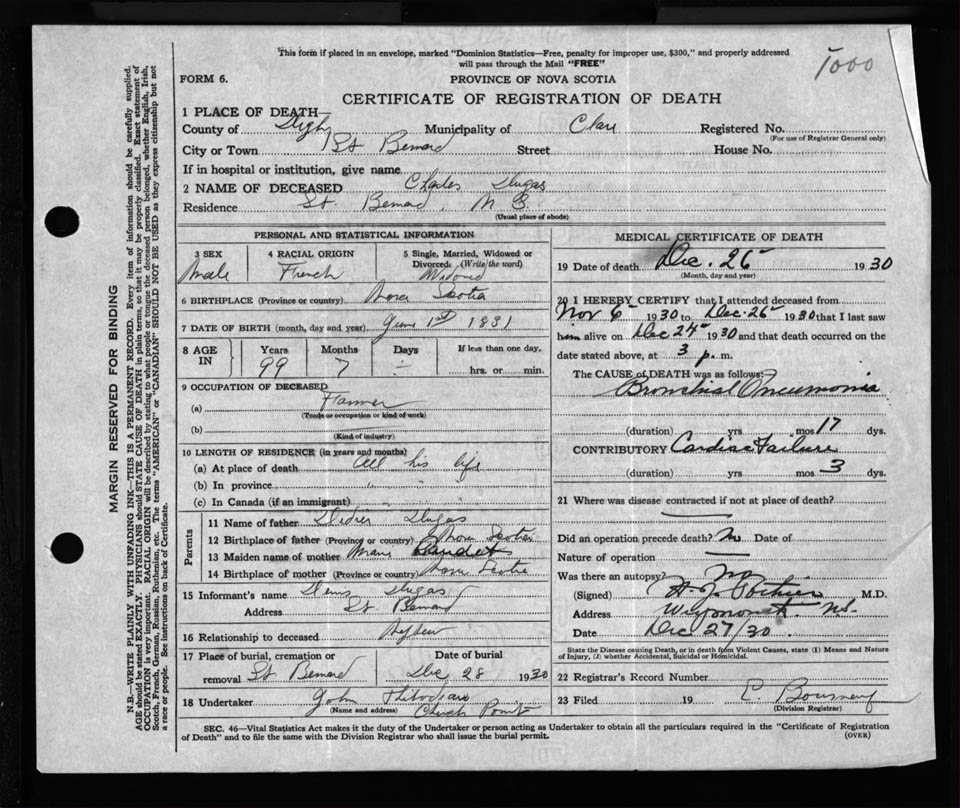 This form if placed in an envelope, marked "Dominion Statistics—Free, penalty for improper use, $300," and properly addressed
will pass through the Mail "FREE"
1000
FORM 6.
PROVINCE OF NOVA SCOTIA
CERTIFICATE OF REGISTRATION OF DEATH
1 PLACE OF DEATH—
County of Digby Municipality of Clare Registered No.
(For use of Registrar General only)
City or Town St Bernard Street House No.
If in hospital or institution, give name
2 NAME OF DECEASED Charles Dugas
Residence St. Bernard, N S
(Usual place of abode)
PERSONAL AND STATISTICAL INFORMATION
3 SEX 4 RACIAL ORIGIN 5 Single, Married, Widowed or
Divorced. (Write the word)
Male French Widowed
6 BIRTHPLACE (Province or country) Nova Scotia
7 DATE OF BIRTH (month, day and year) June 1st 1831
8 AGE IN Years Months Days If less than one day,
99 7 — hrs. or min.
9 OCCUPATION OF DECEASED
(a) Farmer
(Trade or occupation or kind of work)
(b)
(Kind of industry)
10 LENGTH OF RESIDENCE (in years and months)
(a) At place of death all his life
(b) In province " " "
(c) In Canada (if an immigrant) " " "
Parents
11 Name of father Dugas
12 Birthplace of father (Province or country) Nova Scotia
13 Maiden name of mother Marie
14 Birthplace of mother (Province or country) Nova Scotia
15 Informant's name Denis Dugas
Address St Bernard
16 Relationship to deceased Nephew
17 Place of burial, cremation or Date of burial
removal St Bernard Dec 28 1930
18 Undertaker John Thibodeau
(Name and address) Church Point
MEDICAL CERTIFICATE OF DEATH
19 Date of death Dec. 26 1930
(Month, day and year)
20 I HEREBY CERTIFY that I attended deceased from
Nov 6 1930 to Dec. 26 1930 that I last saw
him alive on Dec 24 1930 and that death occurred on the
date stated above, at 3 p. m.
The CAUSE of DEATH was as follows:
Bronchial Pneumonia
(duration) yrs mos 17 dys.
CONTRIBUTORY Cardiac Failure
(duration) yrs mos 3 dys.
21 Where was disease contracted if not at place of death?
Did an operation precede death? No Date of
Nature of operation
Was there an autopsy? No
(Signed) M.D.
Address Weymouth N.S.
Date Dec 27/30
State the Disease causing Death, or in death from Violent Causes, state (1) Means and Nature
of Injury, (2) whether Accidental, Suicidal or Homicidal.
22 Registrar's Record Number
23 Filed 19
(Division Registrar)
SEC. 46—Vital Statistics Act makes it the duty of the Undertaker or person acting as Undertaker to obtain all the particulars required in the "Certificate of Registration
of Death" and to file the same with the Division Registrar who shall issue the burial permit. (OVER)
MARGIN RESERVED FOR BINDING
N.B.—WRITE PLAINLY WITH UNFADING INK—THIS IS A PERMANENT RECORD. Every item of information should be carefully supplied.
AGE should be stated EXACTLY. PHYSICIANS should STATE CAUSE OF DEATH in plain terms, so that it may be properly classified. Exact statement of
OCCUPATION is very important. RACIAL ORIGIN will be described by stating to what people or tongue the deceased person belonged, whether English, Irish,
Scotch, French, German, Russian, Ruthenian, etc. The terms "AMERICAN" or "CANADIAN" SHOULD NOT BE USED as they express citizenship but not
a race or people. See instructions on back of Certificate.